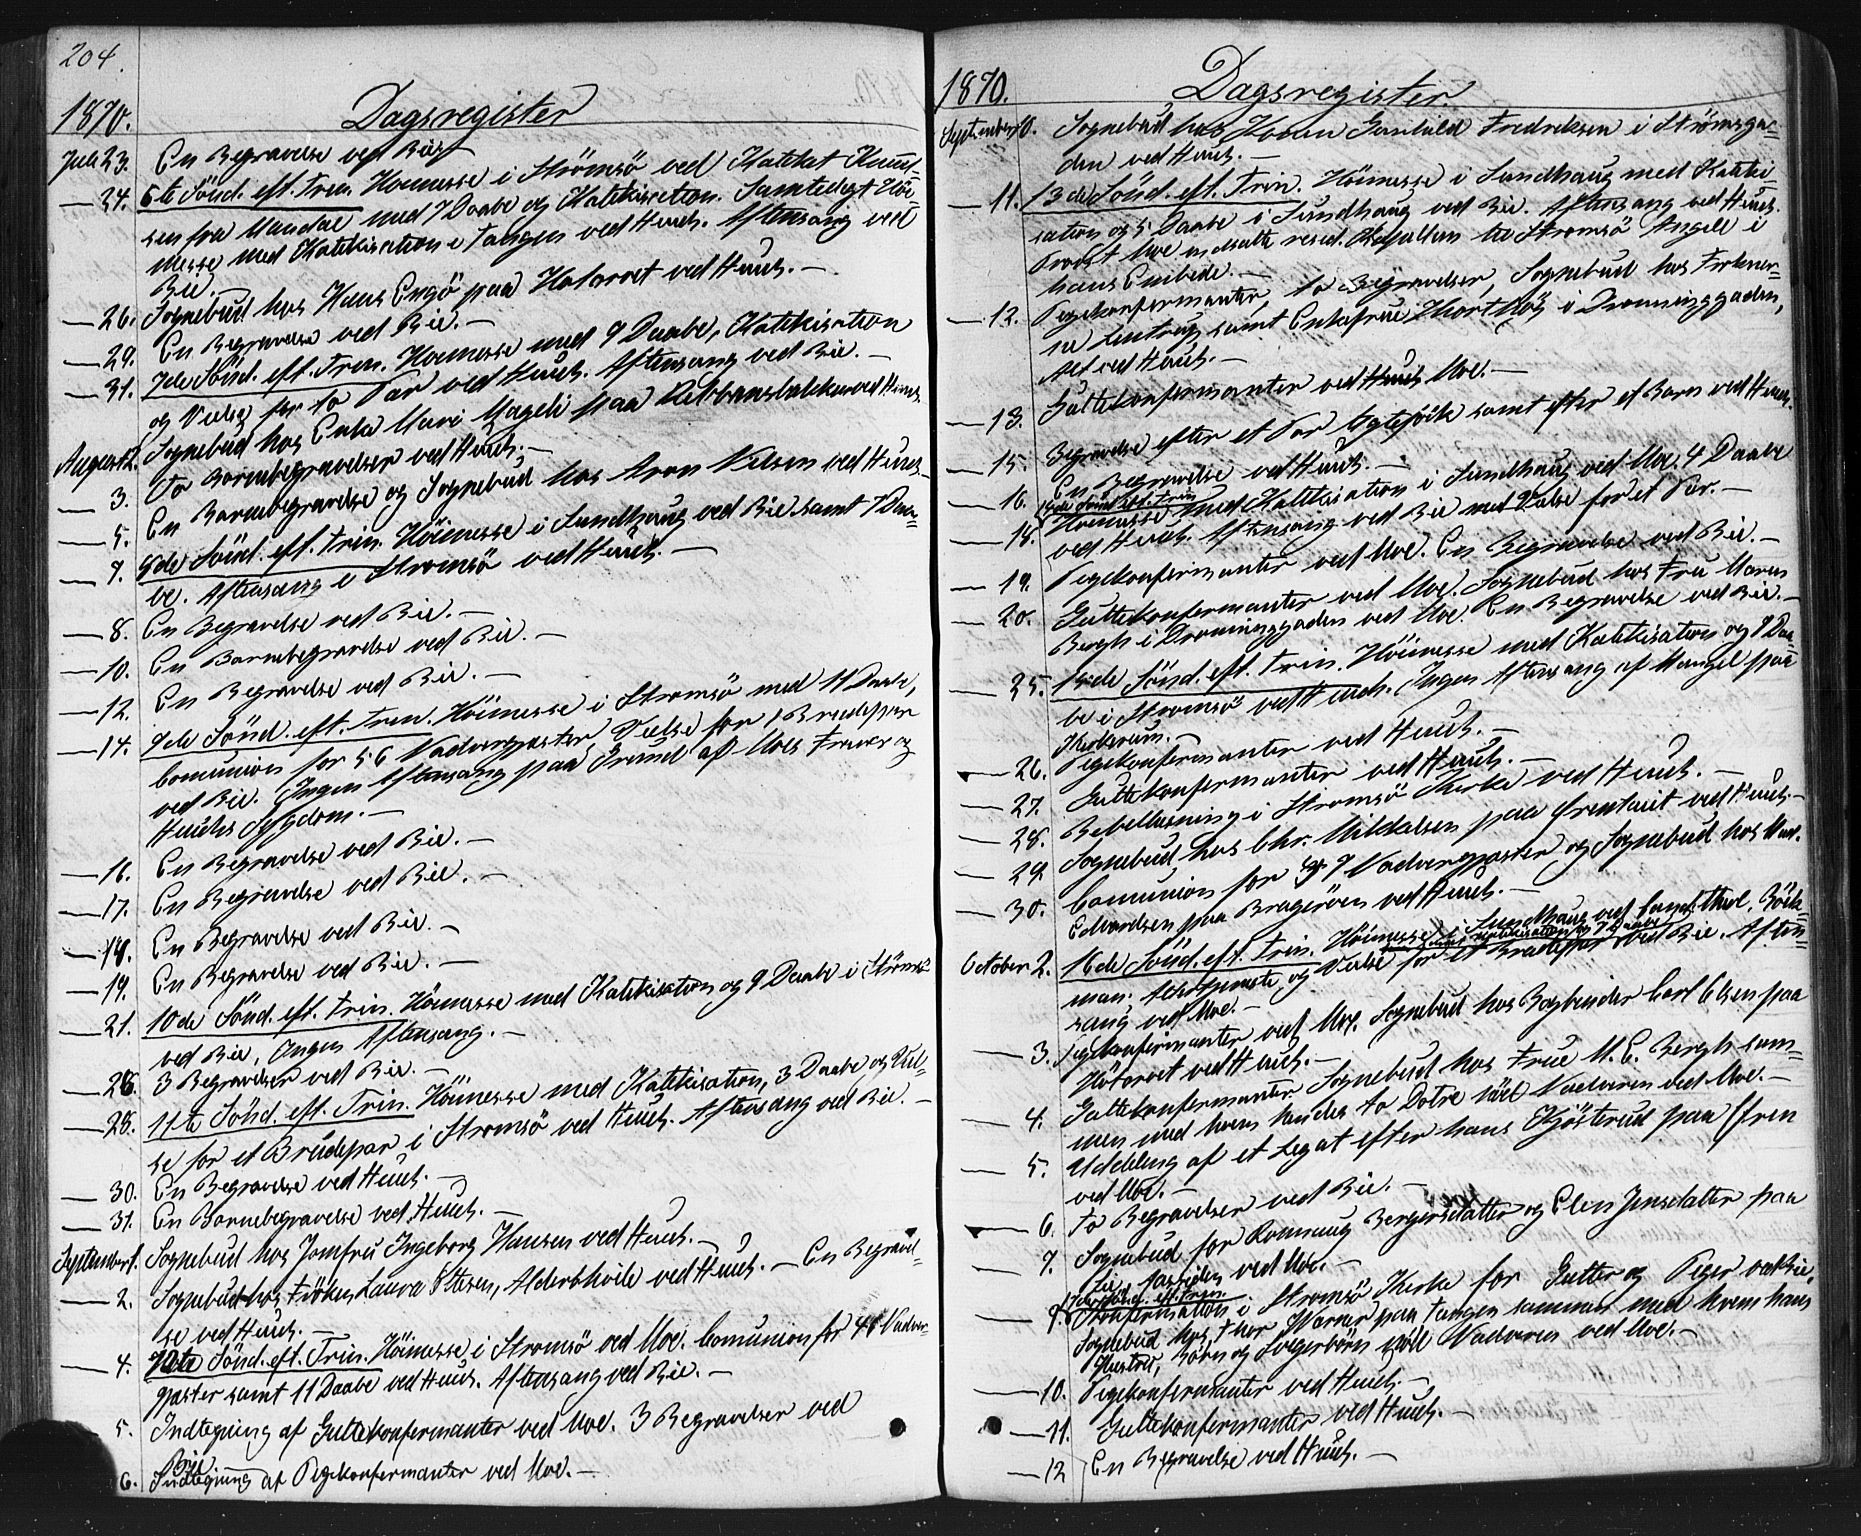 204.
1870.
Dagsregister
Juli 23. En Begravelse ved Bie.—
— 24. 6te Sönd. eft. Trin. Höimesse i Strömsö ved Katekat Knud-
sen fra Mandal med 7 Daabe og Katekisation. Samtidigt Höi-
messe med Katekisation i Tangen ved Huus. Aftensang ved
Bie.—
— 26. Sognebud hos Hans Engö paa ved Huus.—
— 29. En Begravelse ved Bie.—
— 31. 7de Sönd. eft. Trin. Höimesse med 9 Daabe, Katekisation
og Vielse for to Par ved Huus. Aftensang ved Bie.—
August 2. Sognebud hos Enke Mari Mageli paa ved Huus.
— 3. To Barnebegravelser ved Huus.—
— 5. En Barnebegravelse og Sognebud hos Aron Nilsen ved Huus.—
— 7. 8de Sönd. eft. Trin. Höimesse i Sundhaug ved Bie samt 7 Daa-
be. Aftensang i Strömsö ved Huus.—
— 8. En Begravelse ved Bie.—
— 10. En Barnebegravelse ved Bie.—
— 12. En Begravelse ved Bie.—
— 14. 9de Sönd. eft. Trin. Höimesse i Strömsö med 11 Daabe,
Comunion for 56 Nadvergjæster Vielse for 1 Brudepar
ved Bie. Ingen Aftensang paa Grund af Moes Fravær og
Huuhs Sygdom.—
— 16. En Begravelse ved Bie.—
— 17. En Begravelse ved Bie.—
— 18. En Begravelse ved Bie.—
— 19. En Begravelse ved Bie.—
— 21. 10de Sönd. eft. Trin. Höimesse med Katekisation og 9 Daabe i Strömsö
ved Bie. Ingen Aftensang.—
— 26. 3 Begravelser ved Bie.—
— 28. 11te Sönd. eft. Trin. Höimesse med Katekisation, 3 Daabe og Viel-
se for et Brudepar i Strömsö ved Huus. Aftensang ved Bie.—
— 30. En Begravelse ved Huus.—
— 31. En Barnebegravelse ved Huus.—
September 1. Sognebud hos Jomfru Ingeborg Hansen ved Huus.—
— 2. Sognebud hos Fröken Laura Ottesen, Aldershvile ved Huus.— En Begravel-
se ved Huus.—
— 4. 12te Sönd. eft. Trin. Höimesse i Strömsö ved Moe. Comunion for 41 Nadver-
gjæster samt 11 Daabe ved Huus. Aftensang ved Bie.—
5. Indtegning af Guttekonfermanter ved Moe. 3 Begravelser ved
Bie
6. Indtegning af Pigekonfermanter ved Moe.—
1870.
Dagsregister.
September 10. Sognebud hos Konen Gunhild Fredriksen i Strömsgaa-
den ved Huus.—
— 11. 13de Sönd. eft. Trin. Höimesse i Sundhaug med Kateki-
sation og 5 Daabe i Sundhaug ved Bie. Aftensang ved Huus.
Provst Moe indsatte resid. Kapellan til Strömsö Angell i
hans Embede.—
— 12. Pigekonfermanter, to Begravelser, Sognebud hos
samt Enkefrue Horthöÿ i Dronninggaden,
Alt ved Huus.—
— 13. Guttekonfermanter ved Huus Moe.—
— 15. Begravelse efter et Par Ægtefölk samt efter et Barn ved Huus.
— 16. En Begravelse ved Huus.—
14de Sönd. eft. Trin
— 18. Höimesse med Katekisation i Sundhaug ved Moe. 4 Daabe
ved Huus. Aftensang ved Bie med Vielse for et Par.—
— 19. Pigekonfermanter ved Moe. En Begravelse ved Bie.—
— 20. Guttekonfermanter ved Moe. Sognebud hos Fru Maren
Bergh i Dronninggaden ved Moe. En Begravelse ved Bie.—
— 25. 15de Sönd. eft. Trin. Höimesse med Katekisation og 9 Daa-
be i Strömsö ved Huus. Ingen Aftensang af Mangel paa
Kirkerum.—
— 26. Pigekonfermanter ved Huus.—
— 27. Guttekonfermanter ved Huus.—
— 28. Bibellæsning i Strömsö Kirke ved Huus.—
— 29. Sognebud hos Chr. Mikkelsen paa Grönland ved Huus.—
— 30. Comunion for 9 Nadvergjæster og Sognebud hos
Edvardsen paa Brageröen ved Huus.—
October 2. 16de Sönd. eft. Trin. Höimesse i Sundhaug ved Cand. theol. Böck-
man, samt Katekisation og 7 Daabe
og Vielse for et Brudepar ved Bie. Aften-
sang ved Moe.—
— 3. Pigekonfirmanter ved Moe. Sognebud hos Bogbinder Carl Olsen paa
Hötorvet ved Huus.—
— 4. Guttekonfermanter. Sognebud hos Frue M. C. Bergh sam-
men med hvem hendes to Dötre nöd Nadveren ved Moe.—
— 5. Uddeling af et Legat efter hans Kjösterud paa Ören
ved Moe.—
— 6. To Begravelser ved Bie.—
— 7. Sognebud for Ronnaug Bergersdatter og Elen Jensdatter paa
ved Moe.—
17de Sönd. eft. Trin.
— 9. Konfirmation i Strömsö Kirke for Gutter og Piger ved Bie.
Sognebud hos Thor Werner paa Tangen sammen med hvem hans
Hustru, Börn og Svigerbörn nöd Nadveren ved Moe.—
— 10. Pigekonfermanter ved Huus.—
— 11. Guttekonfermanter ved Huus.—
— 12 En Begravelse ved Huus.—